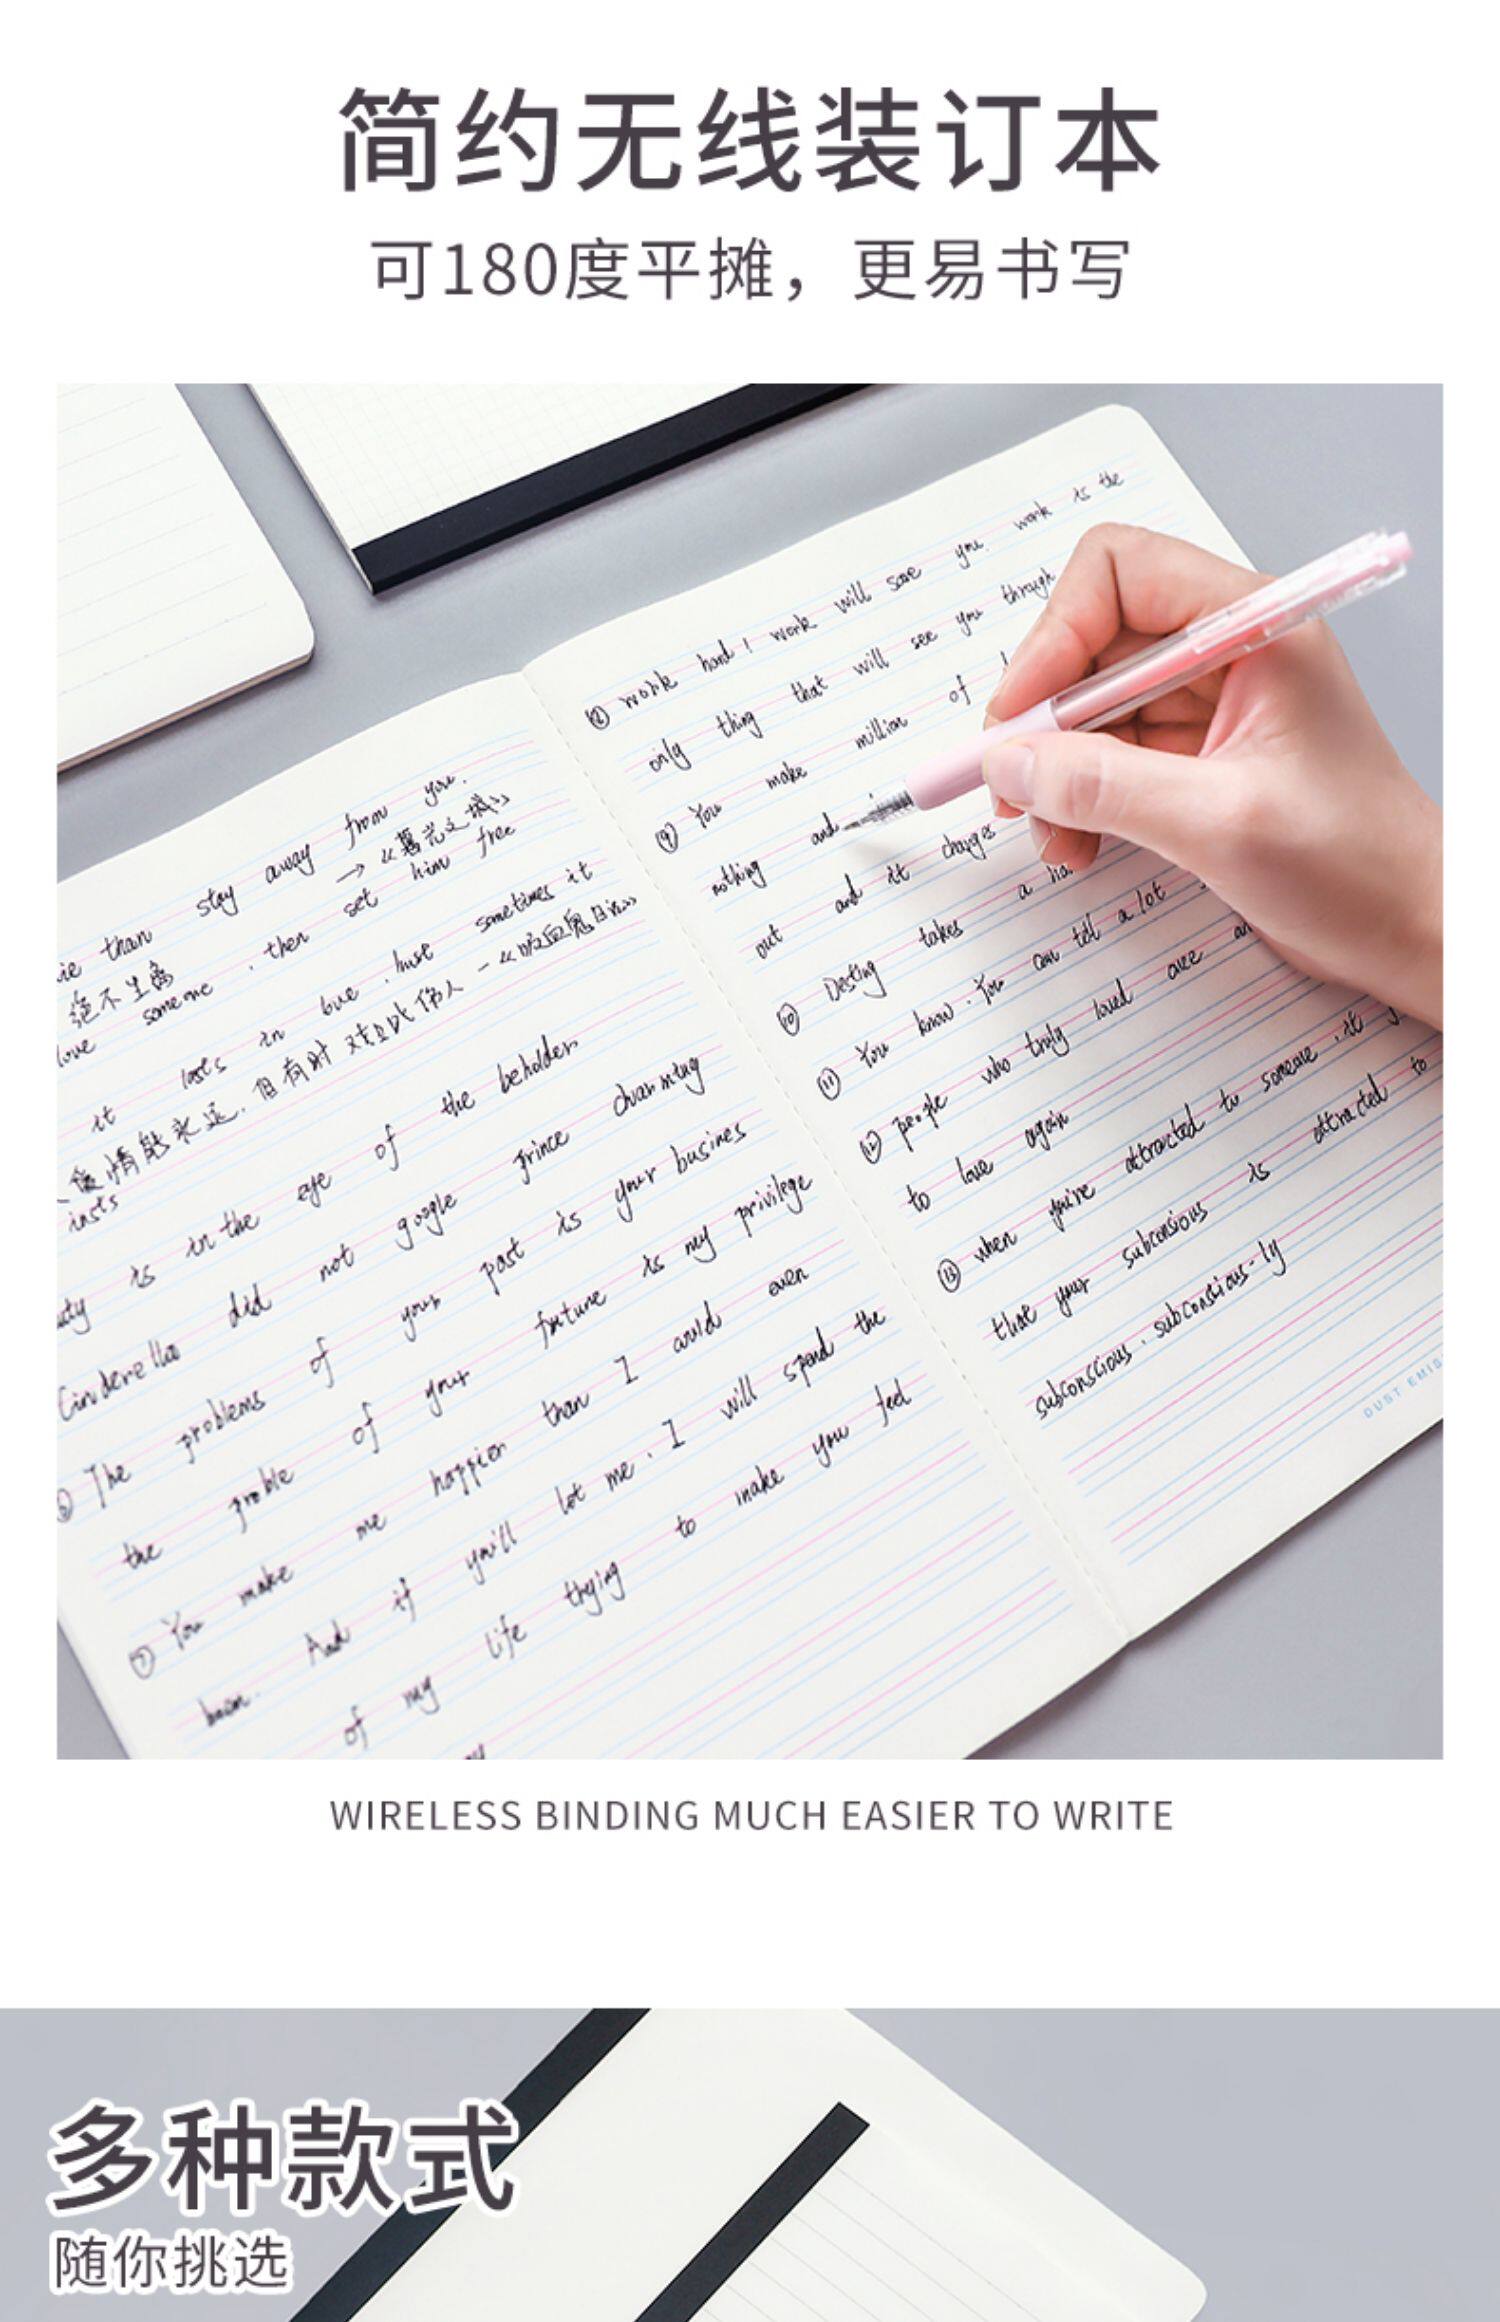 简约无线装订本
可180度平摊，更易书写
ie than stay away from you.
绝不生离 → 《暮光之城》
love someone, then set him free
it lasts in love, but sometimes it
爱情能永远，但有时 《吸血鬼日记》
lasts
is in the eye of the beholder
Cinderella did not google prince charming
⑥ The problems of your past is your busines
the proble of your future is my privilege
⑦ You make me happier than I even
been. And if you'll let me. I will spend the
of my life trying to make you feel
⑧ work hard! work will save you. work is the
only thing that will see you through
⑨ You make million of
nothing and
out and it changes
⑩ Destiny takes a
⑪ You know. You can tell a lot
⑫ people who truly loved are an
to love again
⑬ when you're attracted to someone, it
that your subconsious is attracted to
subconscious. subconscious-ly
DUST EMIS
WIRELESS BINDING MUCH EASIER TO WRITE
多种款式
随你挑选